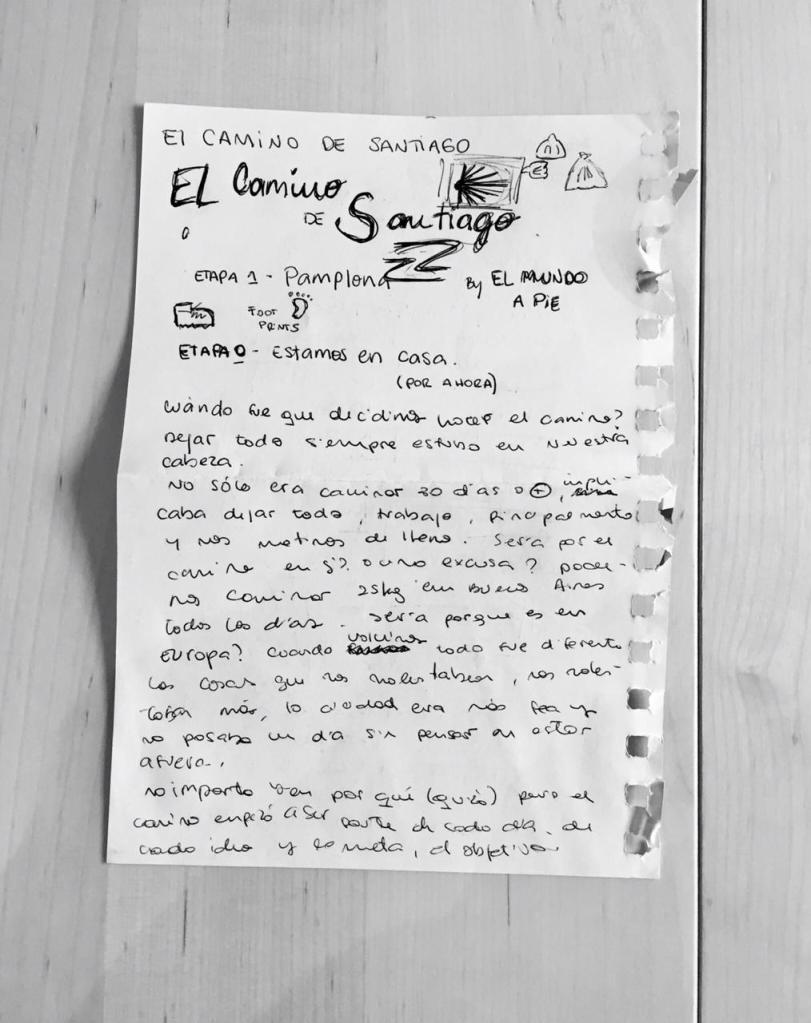 El CAMINO DE SANTIAGO
EL Camino
DE Santiago
ETAPA 1 - Pamplona
By EL MUNDO
A PIE
FOOT
PRINTS
ETAPA 0 - Estamos en casa.
(POR AHORA)
Cuándo fue que decidimos hacer el camino?
Dejar todo siempre estuvo en nuestra
cabeza.
No sólo era caminar 30 días o +, impli-
caba dejar todo, trabajo, principalmente
y nos metimos de lleno. Sería por el
camino en sí? o una excusa? Pode-
mos caminar 25kg en Buenos Aires
todos los días. Sería porque es en
EUROPA? Cuando volvimos todo fue diferente
las cosas que nos molestaban, nos moles-
taban más, la ciudad era más fea y
no pasaba un día sin pensar en estar
afuera.
No importa bien por qué (quizá) pero el
camino empezó a ser parte de cada día, de
cada idea y la meta, el objetivo.